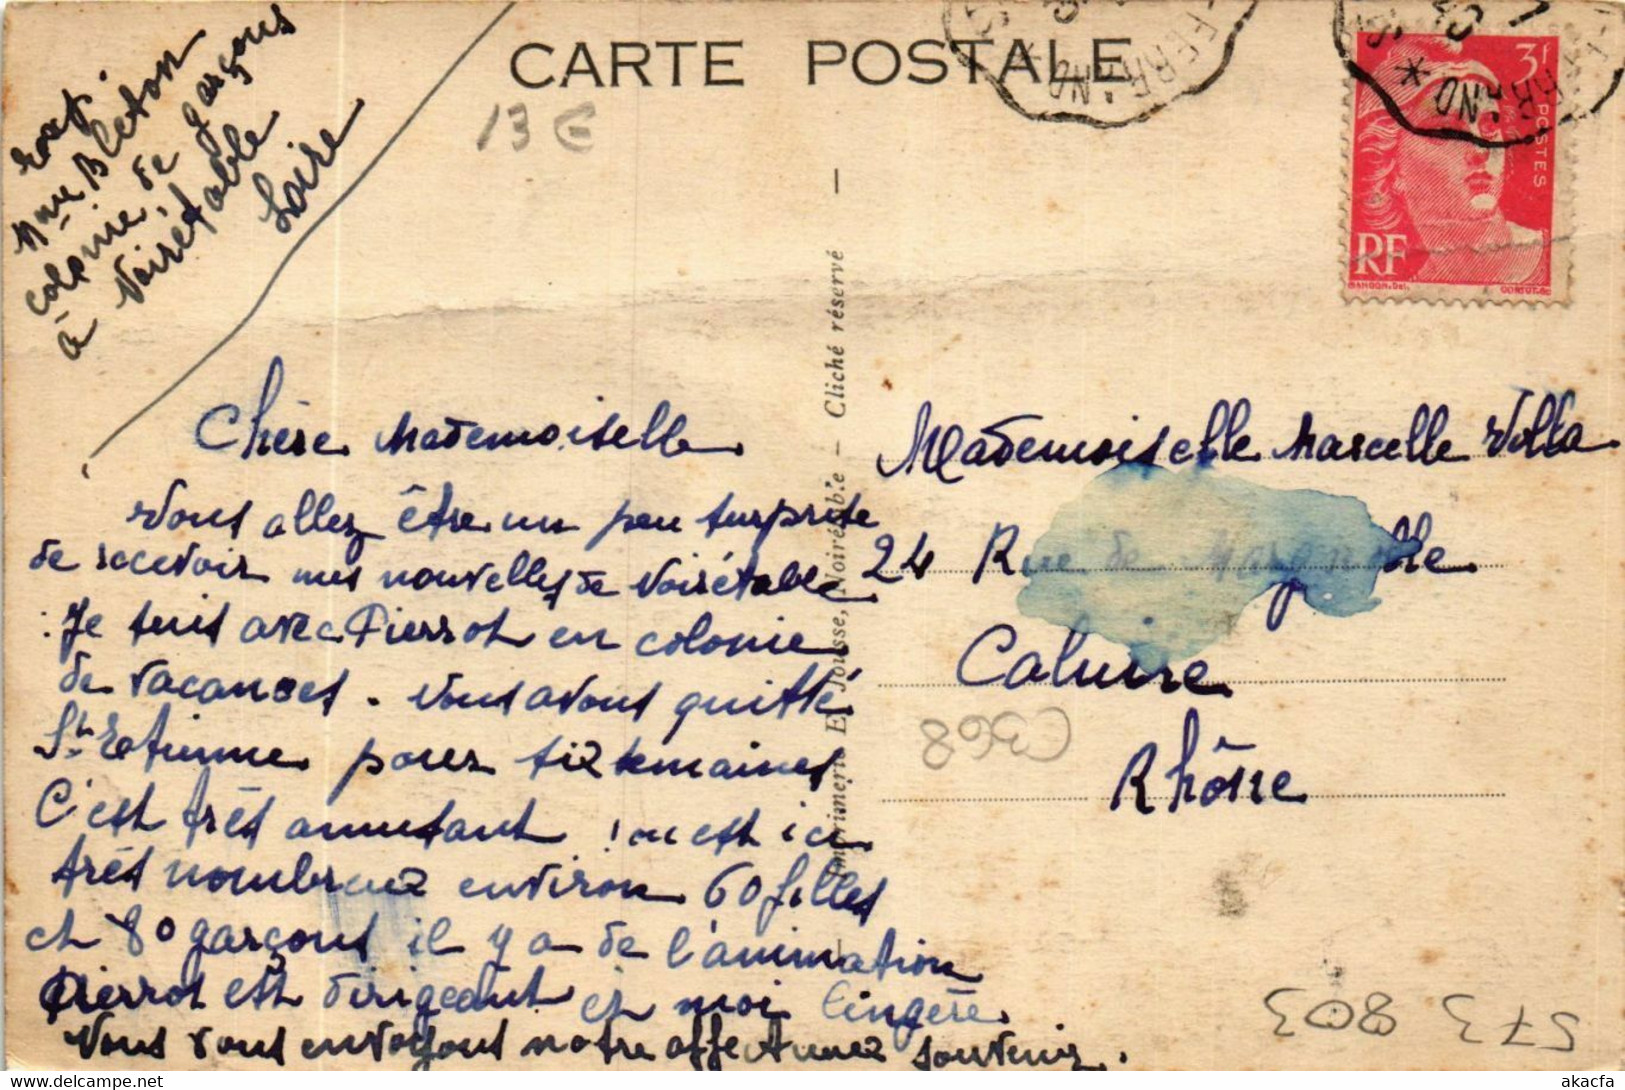 CARTE POSTALE
13 €
exp.
Mme Bleton
colonie de garçons
à Noirétable
Loire
3f
POSTES
RF
GANDON.Del.
CORTOT.SC
Chère Mademoiselle
Vous allez être un peu surprise
de recevoir mes nouvelles de Noirétable
. Je suis avec Pierrot en colonie
de vacances. Nous avons quitté
St Etienne pour six semaines
C'est très amusant ! on est ici
très nombreux environ 60 filles
et 80 garçons il y a de l'animation
Pierrot est dirigeant et moi lingère
Nous vous envoyons notre affectueux souvenir.
Imprimerie E. Jousse, Noirétable — Cliché réservé —
Mademoiselle Marcelle Volla
24 Rue de Margnolle
Caluire
Rhône
C368
573 803
akacfa